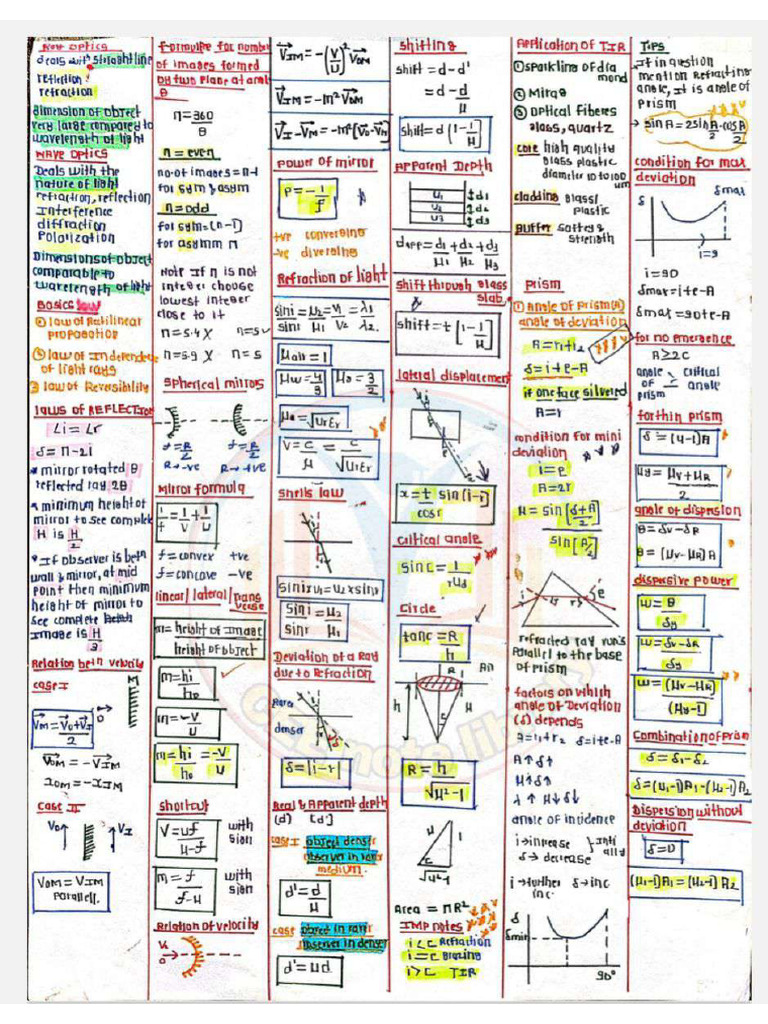 Ray Optics
deals with straight line
reflection
refraction
dimension of object
very large compared to
wavelength of light
WAVE OPTICS
Deals with the
nature of light
refraction, reflection
Interference
diffraction
Polarization
Dimensions of object
comparable to
wavelength of light
Basics law
① law of Ratilinear
propogation
② law of Independence
of light rays
③ law of Reversibility
laws of REFLECTION
∠i = ∠r
δ = π-2i
* mirror rotated θ
reflected ray 2θ
* minimum height of
mirror to see complete
H is H/2
* If observer is betn
wall & mirror, at mid
point then minimum
height of mirror to
see complete
image is H/3
Relation betn velocity
case I
M
V⃗M = (V⃗O + V⃗I)/2
O
V⃗OM = -V⃗IM
XOM = -XIM
CASE II
VO
VI
VOM = VIM
Parallel.
Formulae for number
of images formed
by two plane at angle
θ
n = 360/θ
n = even
no. of images = n-1
for sym & asym
n = odd
for sym = (n-1)
for asymm n
Note If n is not
integer choose
lowest integer
close to it
n = 5.4 X n = 5 ✓
n = 5.9 X n = 5
Spherical mirros
f = R/2 f = R/2
R → -ve R → +ve
Mirror formula
1/f = 1/v + 1/u
f = convex +ve
f = concave -ve
linear/lateral/transverse
m = height of Image / height of object
m = hi/ho
m = -v/u
m = hi/ho = -v/u
Shortcut
V = uf/(u-f) with sign
m = f/(f-u) with sign
Relation of velocity
VO
O
V⃗IM = -(V/U)² V⃗OM
V⃗IM = -m² V⃗OM
V⃗I - V⃗M = -m² [V⃗O - V⃗M]
power of mirror
P = -1/f
+ve converging
-ve diverging
Refraction of light
sini/sinr = μ2/μ1 = V1/V2 = λ1/λ2
μair = 1
μw = 4/3 μg = 3/2
μ = √μrεr
V = c/μ = c/√μrεr
Snells law
sini x u1 = u2 x sinr
sini/sinr = μ2/μ1
Deviation of a Ray
due to refraction
rarer
denser
δ = |i-r|
Real & Apparent depth
(d) [d']
case I object denser
observer in rarer
medium.
d' = d/μ
case object in rarer
observer in denser
d' = μd
Shifting
shift = d-d'
= d - d/μ
shift = d [1 - 1/μ]
Apparent Depth
u1 d1
u2 d2
u3 d3
deff = d1/μ1 + d2/μ2 + d3/μ3
shift through glass
slab.
shift = t [1 - 1/μ]
lateral displacement
x = t/cosr sin(i-r)
critical angle
sinc = 1/rμd
Circle
tanc = R/h
R
h
R = h/√(μ²-1)
μ
1
c
√(u²-1)
Area = πR²
IMP notes
i < c Refraction
i = c Grazing
i > c TIR
Application of TIR
① sparkling of diamond
② Mirag
③ optical fiberes
glass, quartz
core high quality
glass plastic
diameter 10 to 100 um
cladding glass/
plastic
Buffer safety &
strength
prism
① Angle of prism (A)
angle of deviation
A = r1 + r2
δ = i+e-A
if one face silvered
A = r
condition for mini
deviation
i = e
A = 2r
μ = sin[(δ+A)/2] / sin[A/2]
refracted ray run's
parallel to the base
of prism
factors on which
angle of Deviation
(δ) depends
A = r1 + r2 δ = i+e-A
A↑ δ↑
μ↑ δ↑
λ↑ μ↓ δ↓
angle of incidence
i → increase
δ → decrease
i → further δ → inc
inc.
δ
δmin
90°
Tips
→ It in question
mention Refracting
angle, It is angle of
prism
→ sin A = 2sin A/2 cos A/2
condition for max
deviation
δ
δmax
i = 90
δmax = i+e-A
δmax = 90+e-A
for no emergence
A ≥ 2C
angle of prism < critical angle
for thin prism
δ = (μ-1)A
μy = (μV + μR)/2
angle of dispersion
θ = δV - δR
θ = (μV - μR)A
dispersive power
ω = θ/δy
ω = (δV - δR)/δy
ω = (μV - μR)/(μy - 1)
Combination of Prism
δ = δ1 - δ2
δ = (μ1-1)A1 - (μ2-1)A2
Dispersion without
deviation
δ = 0
(μ1-1)A1 = (μ2-1)A2